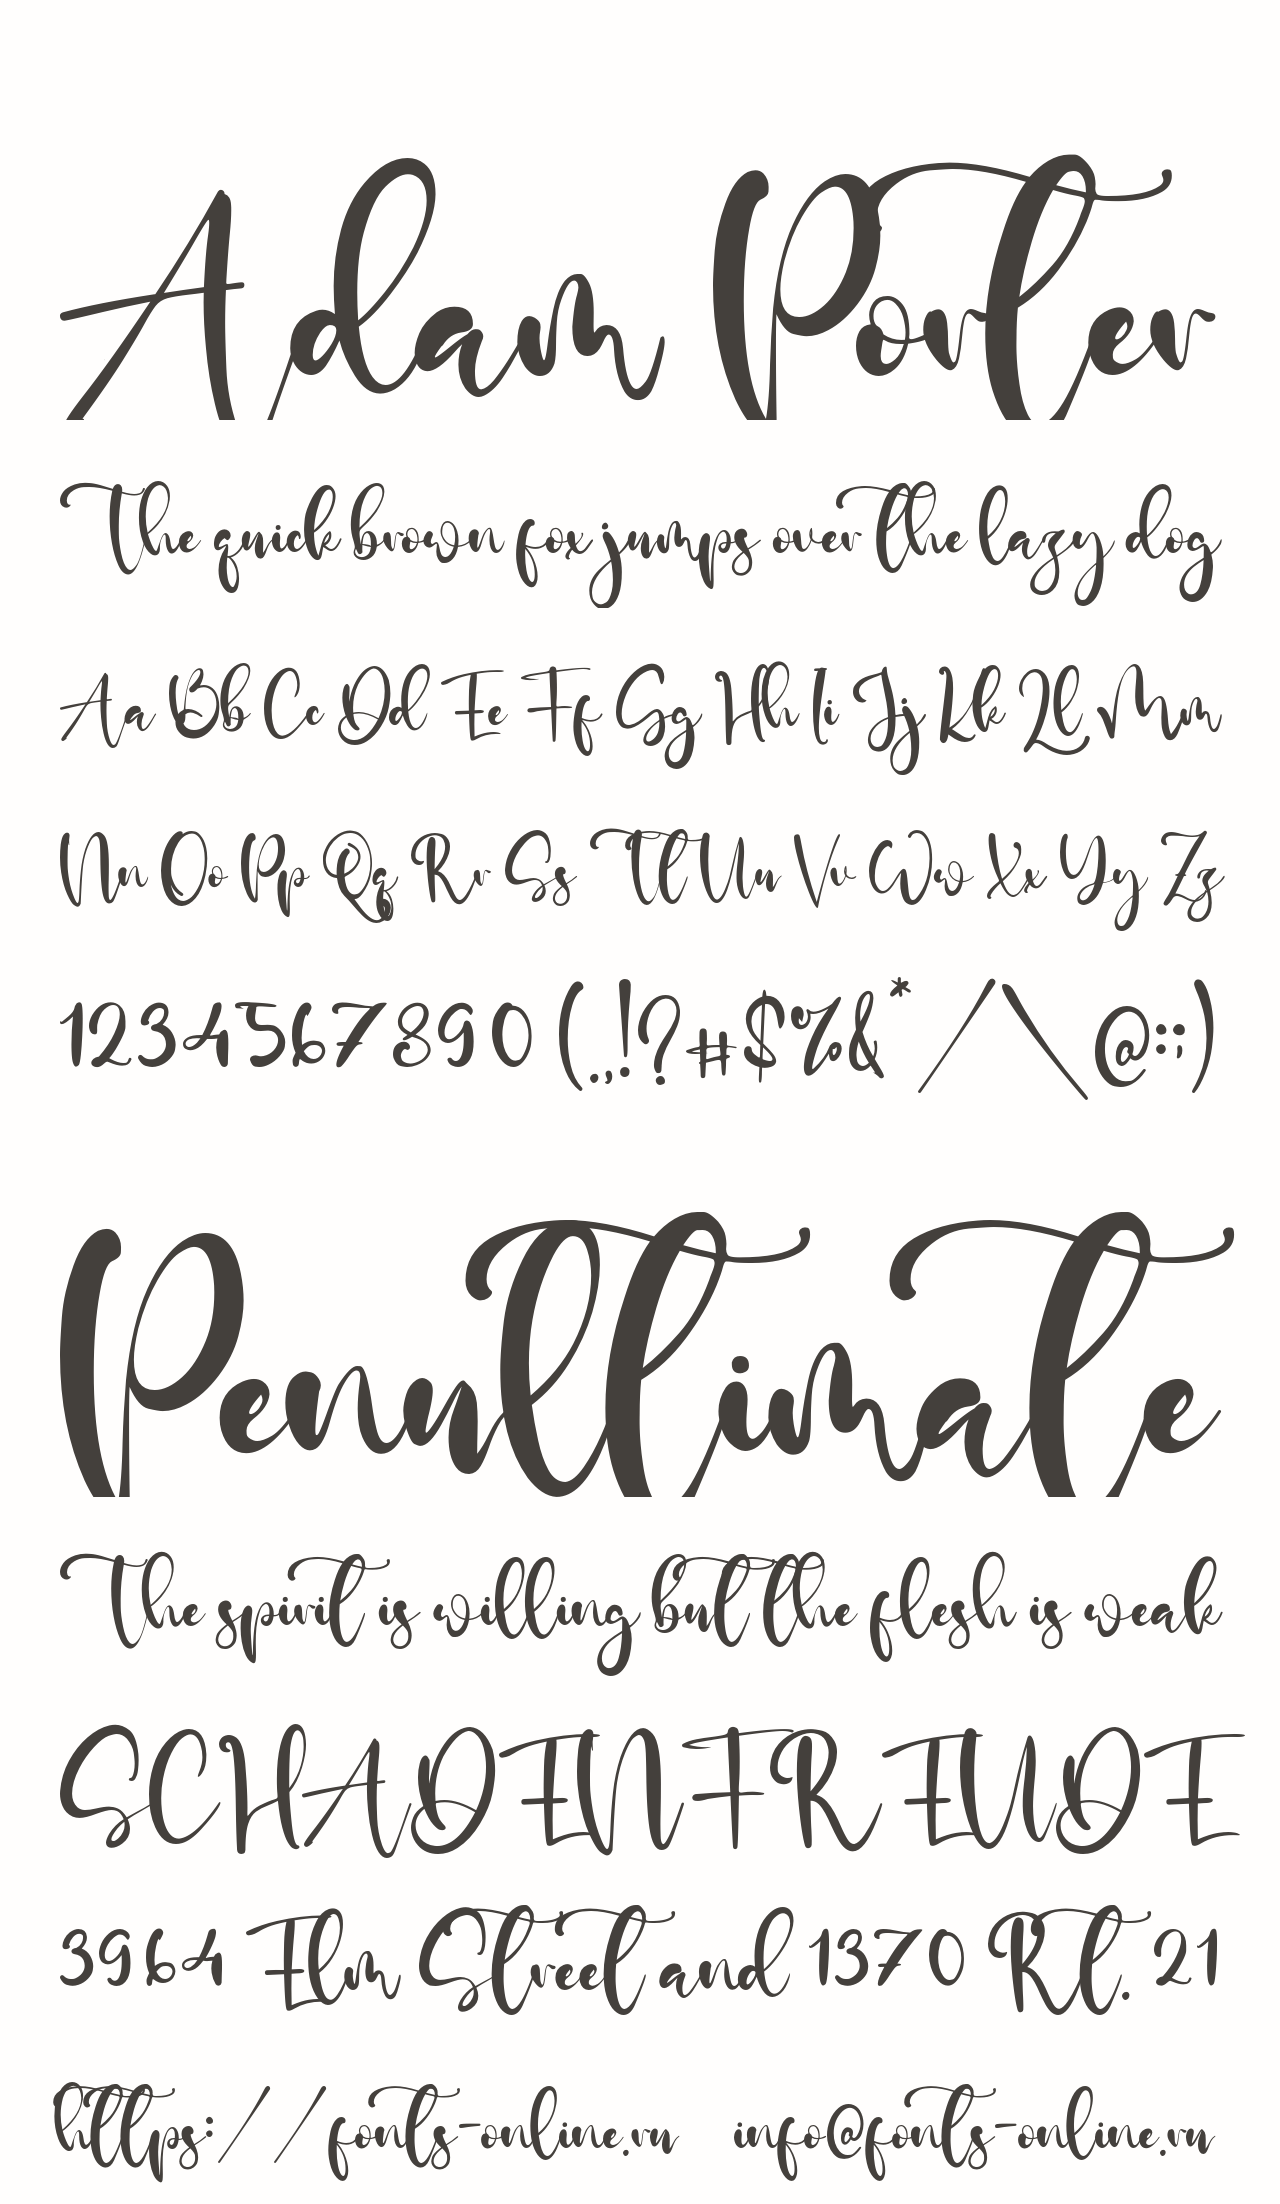 Adam Porter
The quick brown fox jumps over the lazy dog
Aa Bb Cc Dd Ee Ff Gg Hh Ii Jj Kk Ll Mm
Nn Oo Pp Qq Rr Ss Tt Uu Vv Ww Xx Yy Zz
1234567890 (.,!?#$%&* /\ @:;)
Penultimate
The spirit is willing but the flesh is weak
SCHADENFREUDE
3964 Elm Street and 1370 Rt. 21
https://fonts-online.ru info@fonts-online.ru